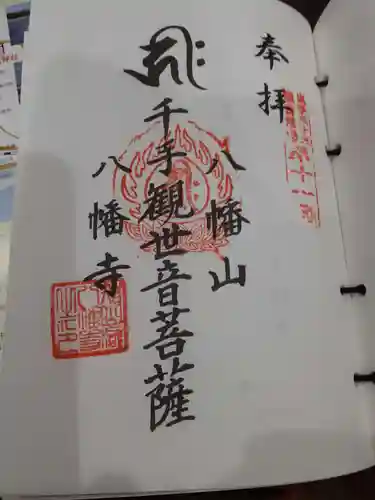 奉拝
八幡山
千手観世音菩薩
八幡寺